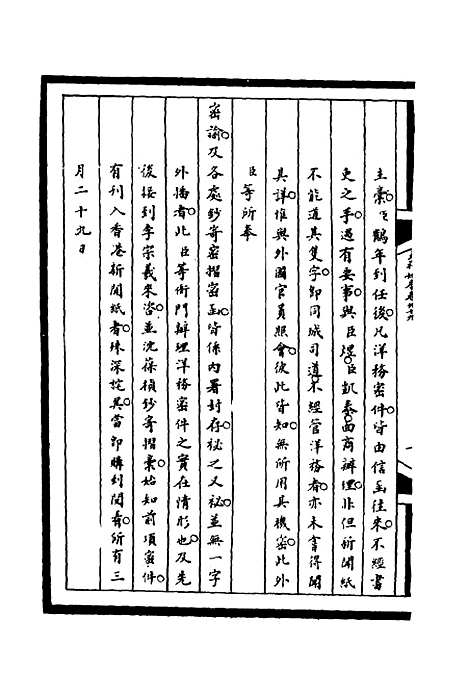 主稾臣鶴年到任後凡洋務密件皆由信函往來不經書
吏之手遇有要事與臣煜臣凱泰面商辦理非但新聞紙
不能道其隻字即同城司道不經管洋務者亦未嘗得聞
其詳惟與外國官員照會彼此皆知無所用其機密此外
臣等所奉
密諭及各處鈔寄密摺密函皆係內署封存秘之又秘並無一字
外播者此臣等衙門辦理洋務密件之實在情形也及先
後接到李宗羲來咨並沈葆楨鈔寄摺稾始知前項密件
有刊入香港新聞紙者殊深詫異當即購到閱看所有三
月二十九日